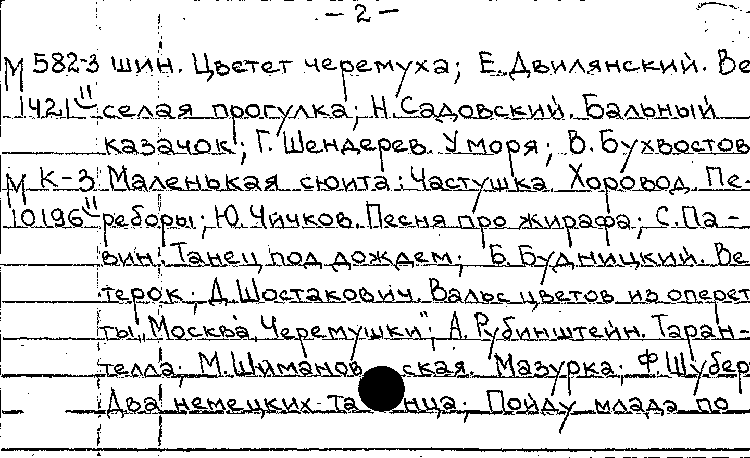 – 2 –
М 582-3 шин. Цветет черемуха; Е. Двилянский. Ве
1421" селая прогулка; Н. Садовский. Бальный
казачок; Г. Шендерев. У моря; В. Бухвостов
М К-3 Маленькая сюита: Частушка. Хоровод. Пе-
10196" реборы; Ю. Чичков. Песня про жирафа; С. Па-
вин. Танец под дождем; Б. Будницкий. Ве
терок; Д. Шостакович. Вальс цветов из оперет
ты „Москва, Черемушки"; А. Рубинштейн. Таран-
телла; М. Шиманов ская. Мазурка; Ф. Шубер
Два немецких та нца; Пойду млада по